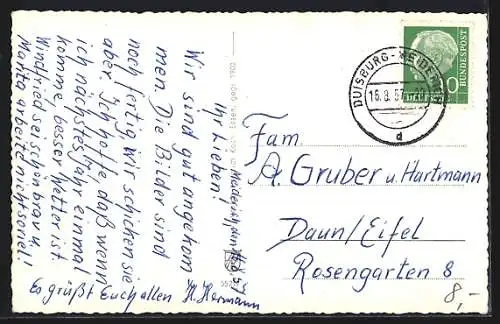 DUISBURG-MEIDERICH
16.8.57
d
10
BUNDESPOST
Meiderich, den
Ihr Lieben!
Wir sind gut angekom
men. Die Bilder sind
noch fertig. Wir schicken sie
aber. Ich hoffe, daß wenn
ich nächstes Jahr einmal
komme, besser Wetter ist.
Winfried sei schön brav u.
Marita arbeite nicht so viel!
Es grüßt Euch allen H. Hermann
Fam.
A. Gruber u. Hartmann
Daun/Eifel
Rosengarten 8
8,-